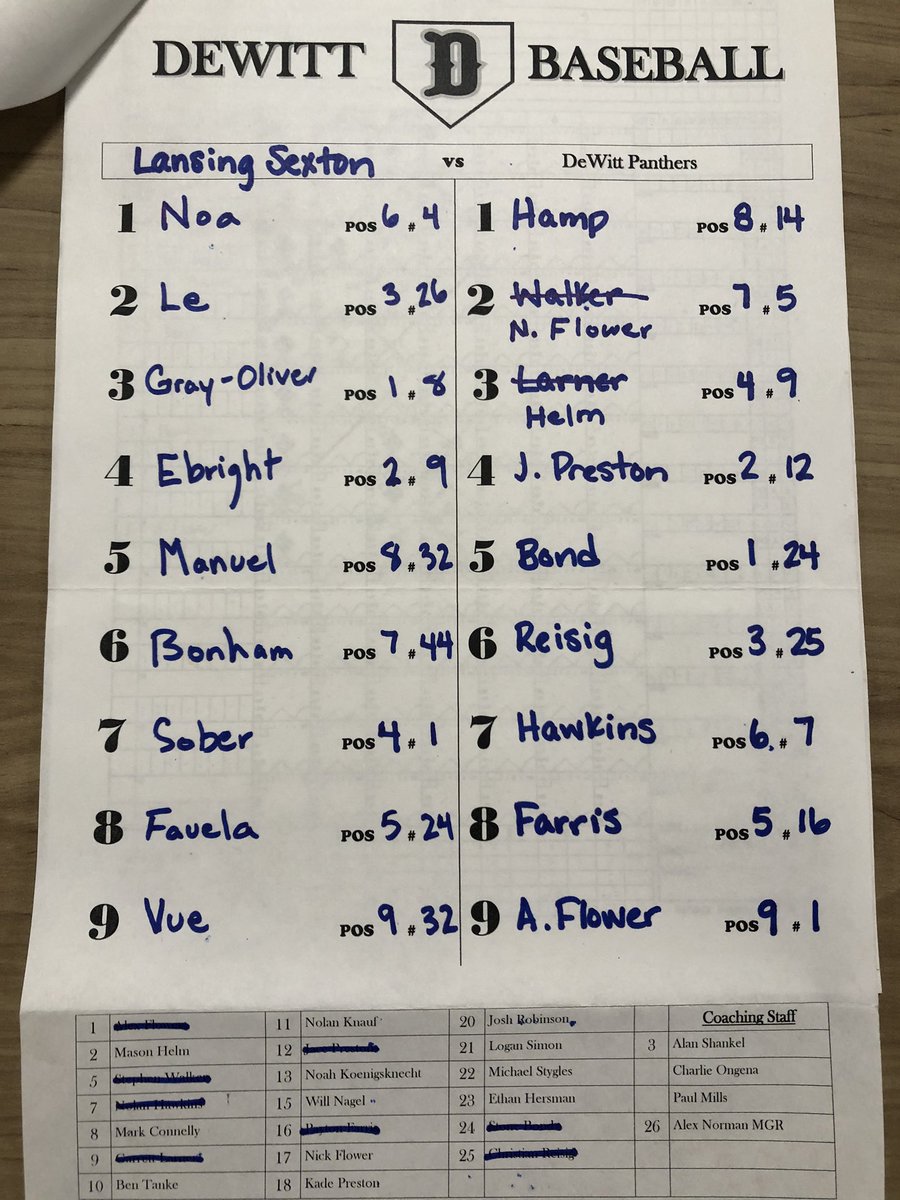 DEWITT D BASEBALL
Lansing Sexton vs DeWitt Panthers
1 Noa POS 6 # 4 1 Hamp POS 8 # 14
2 Le POS 3 # 26 2 Walker POS 7 # 5
N. Flower
3 Gray-Oliver POS 1 # 8 3 Larner POS 4 # 9
Helm
4 Ebright POS 2 # 9 4 J. Preston POS 2 # 12
5 Manuel POS 8 # 32 5 Bond POS 1 # 24
6 Bonham POS 7 # 44 6 Reisig POS 3 # 25
7 Sober POS 4 # 1 7 Hawkins POS 6 # 7
8 Favela POS 5 # 24 8 Farris POS 5 # 16
9 Vue POS 9 # 32 9 A. Flower POS 9 # 1
1 11 Nolan Knauf 20 Josh Robinson Coaching Staff
2 Mason Helm 12 21 Logan Simon 3 Alan Shankel
5 Stephen Walker 13 Noah Koenigsknecht 22 Michael Stygles Charlie Ongena
7 15 Will Nagel 23 Ethan Hersman Paul Mills
8 Mark Connelly 16 24 26 Alex Norman MGR
9 17 Nick Flower 25 Christian Reisig
10 Ben Tanke 18 Kade Preston